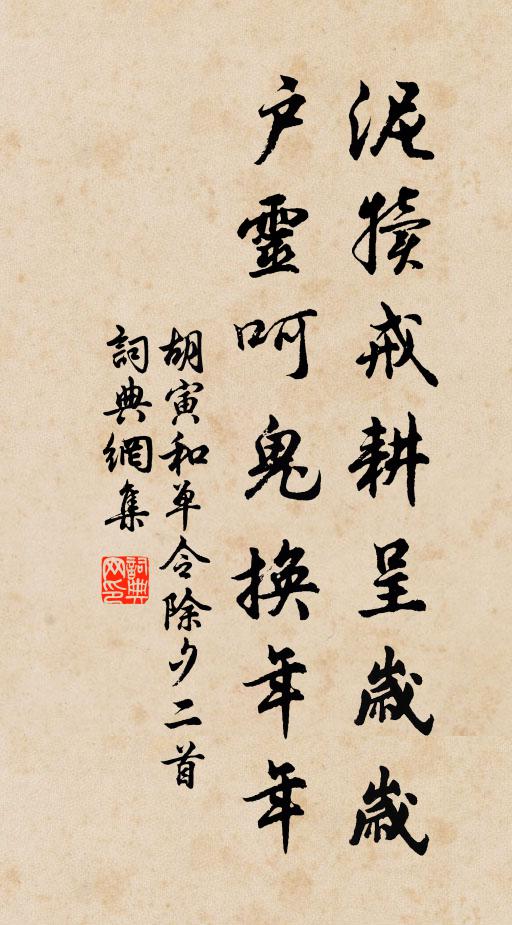 泥犢戒耕呈歲歲
户靈呵鬼換年年
胡寅和单令除夕二首
詞典網集
詞典网印